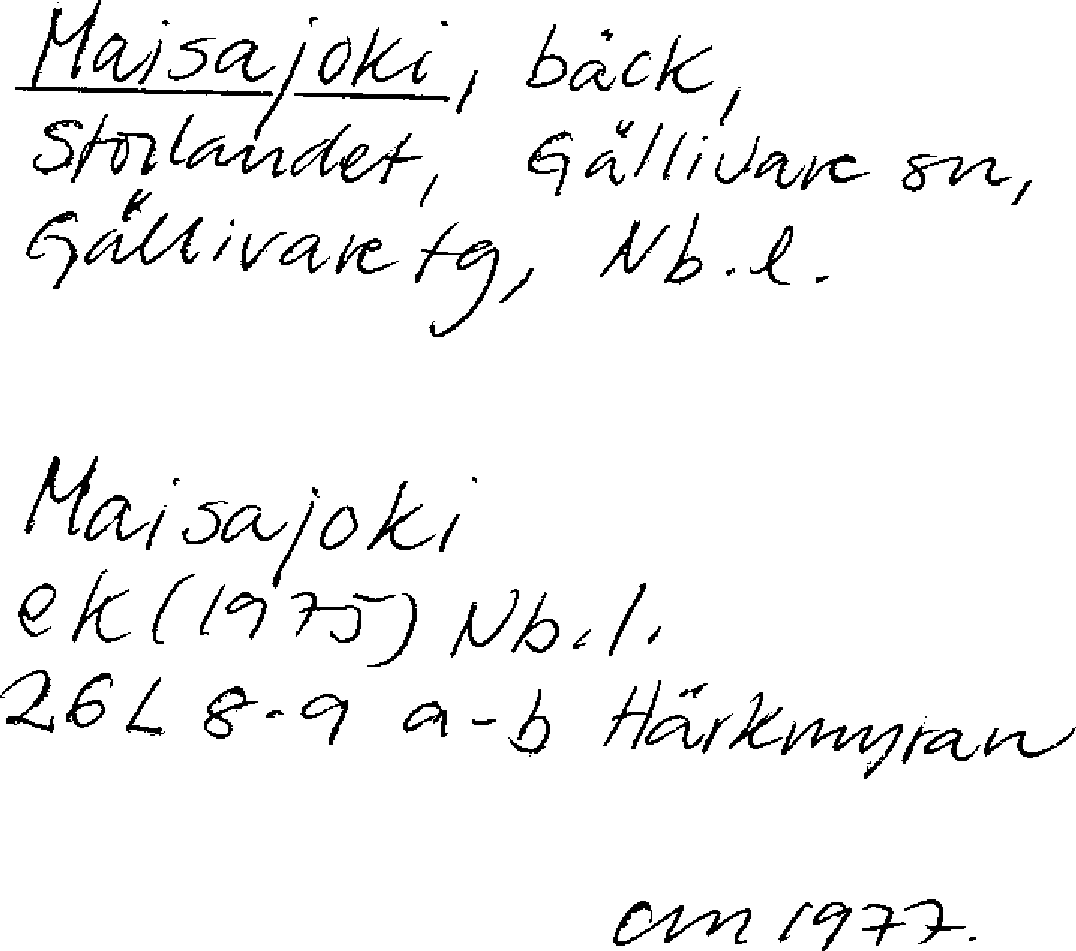 Maisajoki, bäck,
Storlandet, Gällivare sn,
Gällivare tg, Nb.l.
Maisajoki
ek (1975) Nb.l.
26L 8-9 a-b Härkmyran
cm 1977.